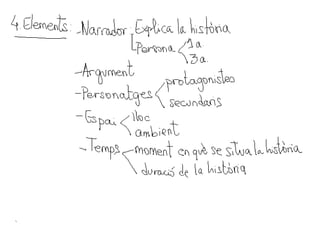 4 Elements: - Narrador Explica la història
Persona 1a
3a
- Argument
- Personatges protagonistes
secundaris
- Espai lloc
ambient
- Temps moment en què se situa la història
duració de la història